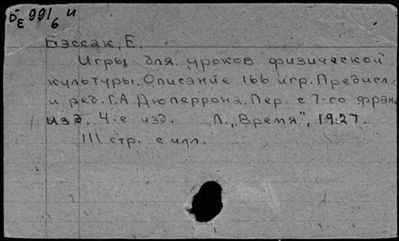 Б 991/6 и
Е
Бэссак, Е.
Игры для уроков физической
культуры. Описание 166 игр. Предисл.
и ред. Г.А. Дюперрона. Пер. с 7-го франц.
изд. 4-е изд. Л., „Время", 1927.
111 стр. с илл.